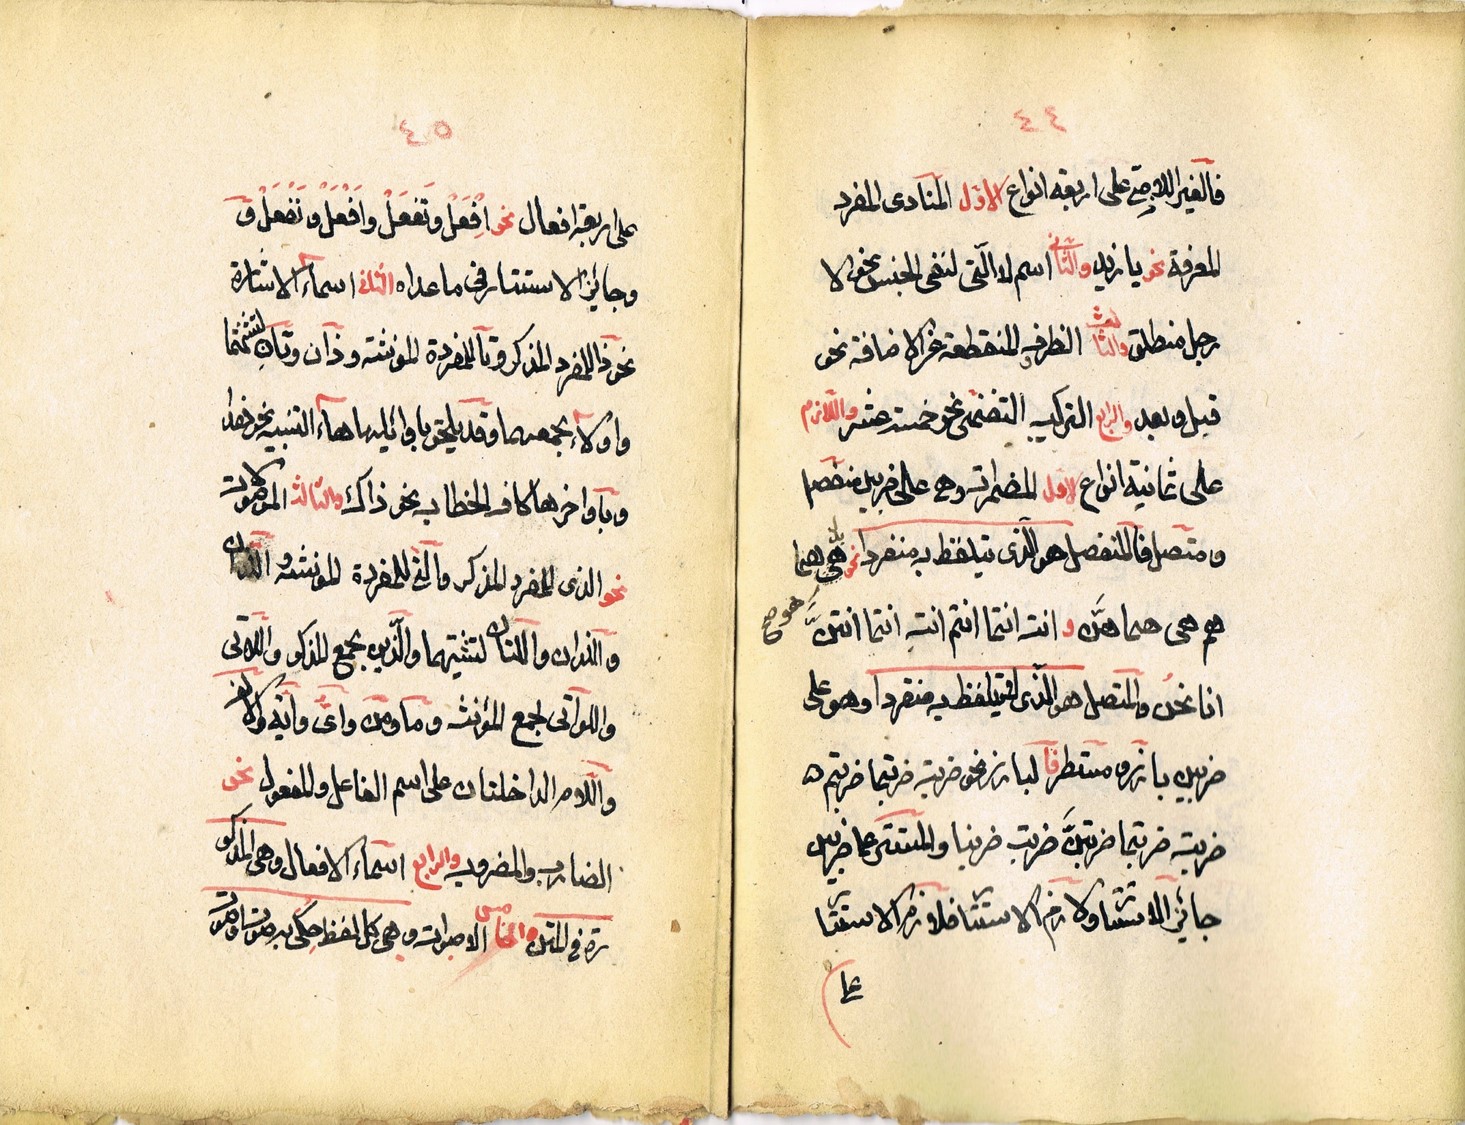 ٤٤
فالغير اللازمي على اربعة انواع الاوّل المنادى المفرد
المعرفة نحو يا زيد والثانى اسم لا الّتى لنفى الجنس نحو لا
رجل منطلق والثالث الظرف المنقطعة عن الاضافة نحو
قبل وبعد والرابع التركيب التضمنى نحو خمسة عشر واللّازم
على ثمانية انواع الاول المضمرات وهى على ضربين منفصل
ومتصل فالمنفصل هو الّذى يتلفظ به منفردا نحو هى هما
هم هى هما هنّ و انت انتما انتم انت انتما انتنّ
هو صح
انا نحن والمتصل هو الّذى لا يتلفظ به منفردا وهو على
ضربين بارز و مستتر فا لبارز نحو ضربت ضربتما ضربتم
ضربت ضربتما ضربتنّ ضربت ضربنا والمستتر على ضربين
جائز الاستتار ولازم الاستتار فلازم الاستتار
على
٤٥
على اربعة افعال نحو اِفْعَلْ وتَفْعَلْ وافعل ونَفْعَلْ
وجايز الاستتار فى ما عداه الثانى اسماء الاشارة
نحو ذا للمفرد المذكر وتا للمفردة المؤنثة وذان وتان لتثنيتهما
واولاء لجمعهما وقد يلحق باوائلها هاء التنبيه نحو هذا
وباواخرها كاف الخطاب نحو ذاك والثالث الموصولات
نحو الذى للمفرد المذكر والّتى للمفردة المؤنثة و
واللذان واللتان لتثنيتهما والّذين لجمع المذكر واللّاتى
واللواتى لجمع المؤنث وما ومن واىّ وايّة والالف
واللّام الداخلتان على اسم الفاعل والمفعول نحو
الضارب والمضروب والرابع اسماء الافعال وهى المذكو
رة فى المتن والخامس الاصوات وهى كل لفظ حكى به صوت او صوت